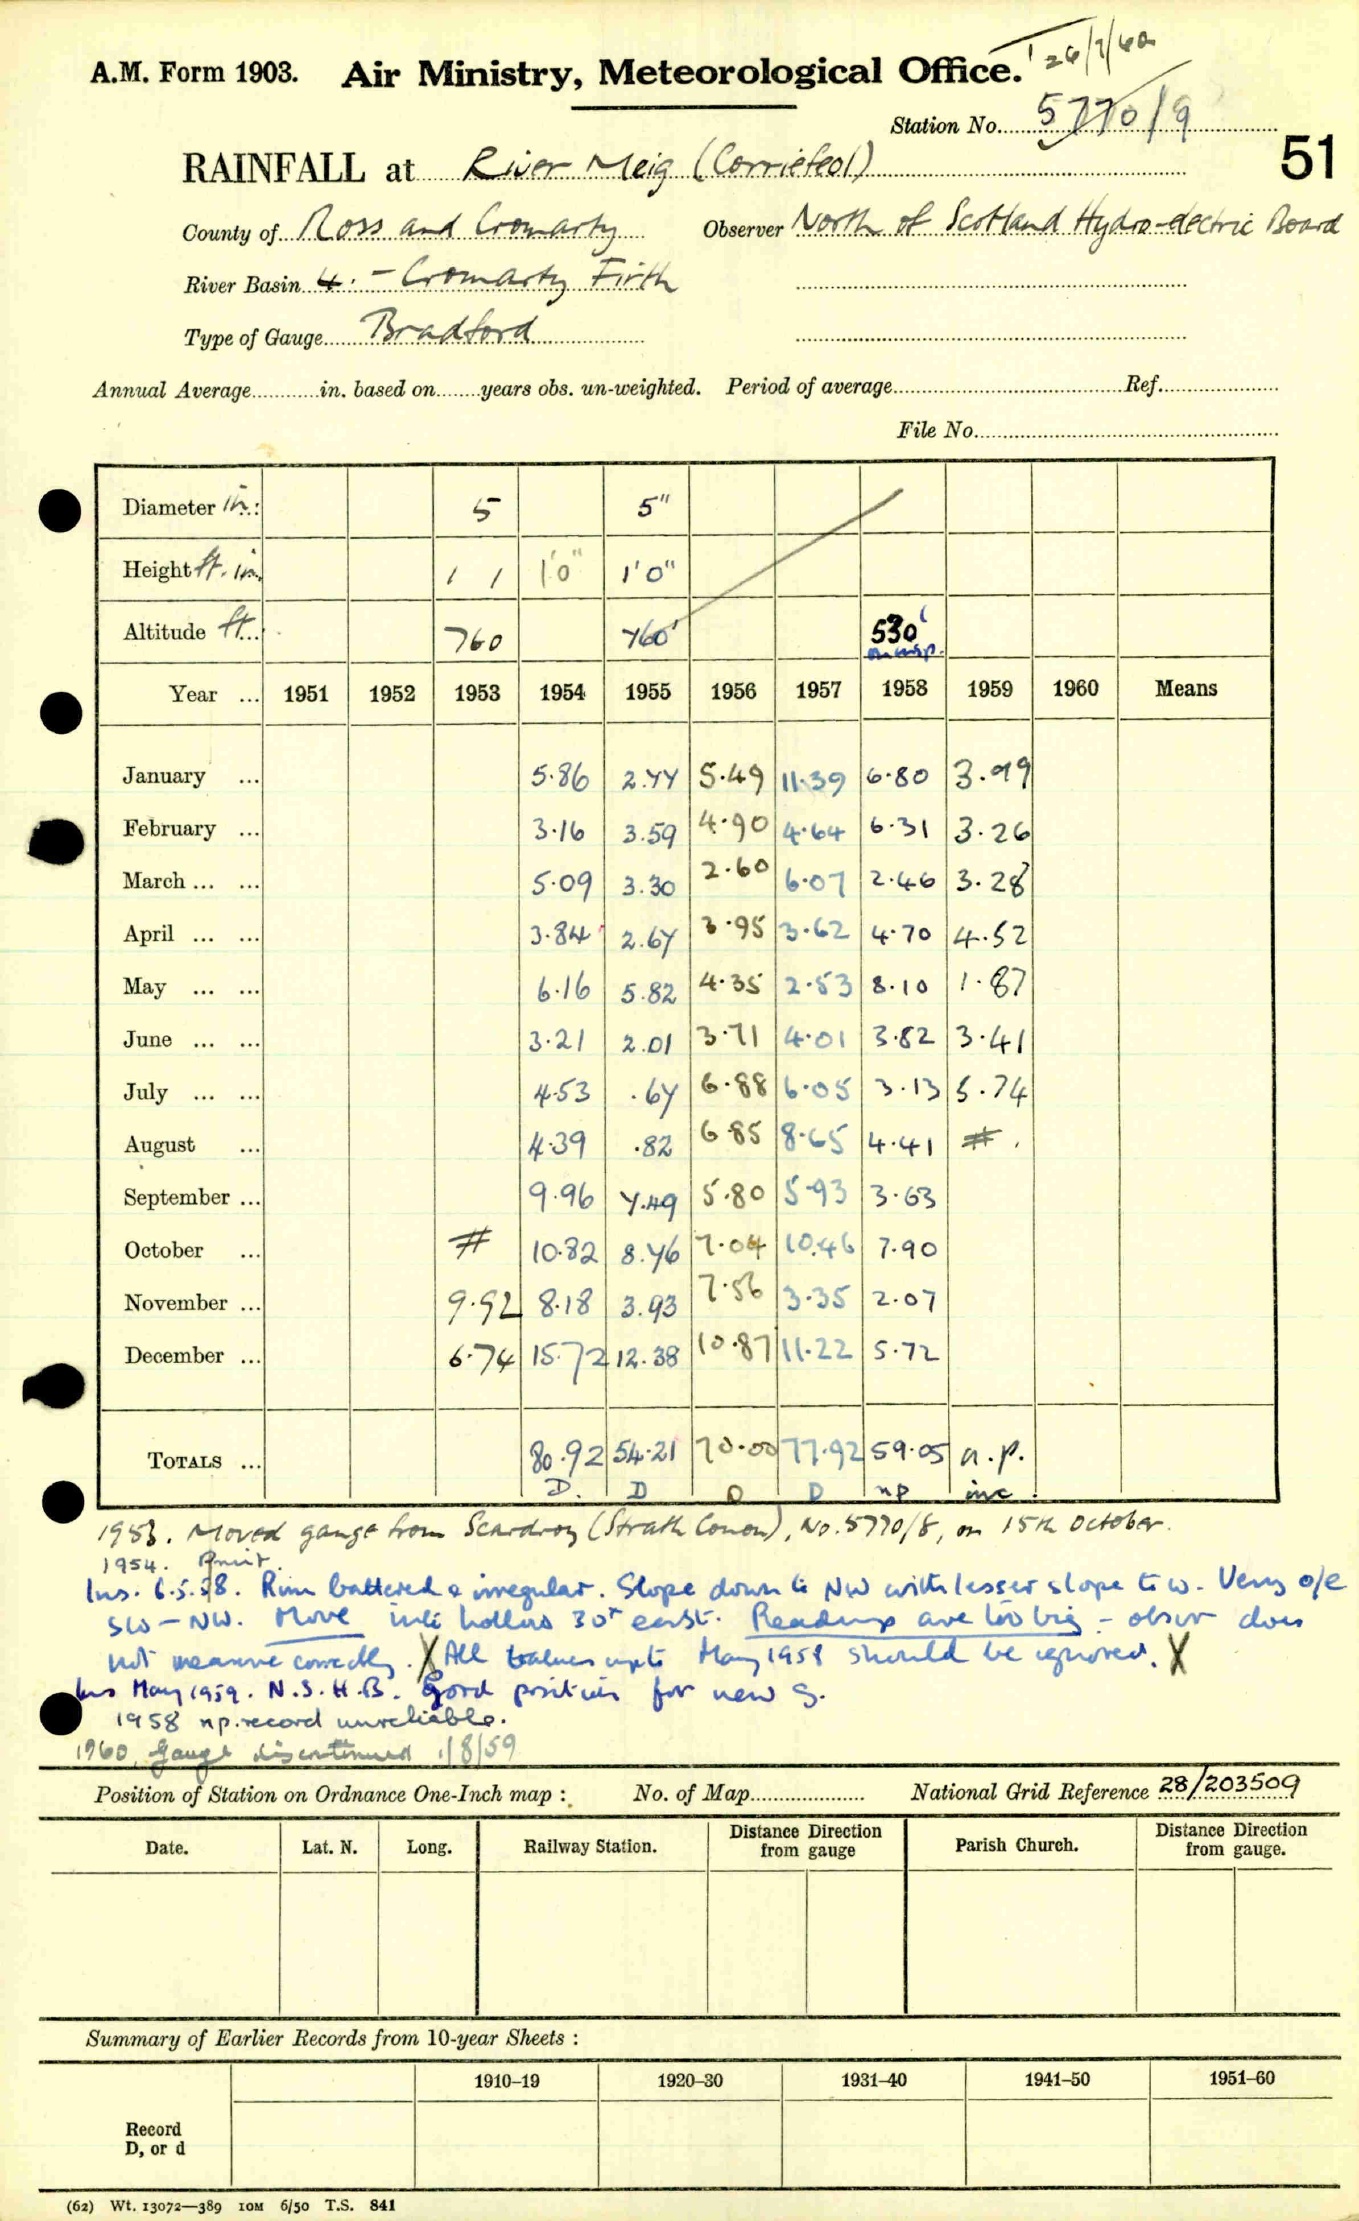 T 26/7/60
A.M. Form 1903. Air Ministry, Meteorological Office.
Station No. 5770/9
51
RAINFALL at River Meig (Corriefeol)
County of Ross and Cromarty Observer North of Scotland Hydro-electric Board
River Basin 4. - Cromarty Firth
Type of Gauge Bradford
Annual Average in. based on years obs. un-weighted. Period of average Ref.
File No.
Diameter in: 5 5"
Height ft. in. 1 1 1'0" 1'0"
Altitude ft. 760 760' 530'
on insp.
Year ... 1951 1952 1953 1954 1955 1956 1957 1958 1959 1960 Means
January ... 5.86 2.77 5.49 11.39 6.80 3.99
February ... 3.16 3.59 4.90 4.64 6.31 3.26
March ... ... 5.09 3.30 2.60 6.07 2.46 3.28
April ... ... 3.84 2.67 3.95 3.62 4.70 4.52
May ... ... 6.16 5.82 4.35 2.53 8.10 1.87
June ... ... 3.21 2.01 3.71 4.01 3.82 3.41
July ... ... 4.53 .67 6.88 6.05 3.13 5.74
August ... 4.39 .82 6.85 8.65 4.41 #
September ... 9.96 7.49 5.80 5.93 3.63
October ... # 10.82 8.76 7.04 10.46 7.90
November ... 9.92 8.18 3.93 7.56 3.35 2.07
December ... 6.74 15.72 12.38 10.87 11.22 5.72
TOTALS ... 80.92 54.21 70.00 77.92 59.05 n.p.
D. D D D np inc
1953. Moved gauge from Scardroy (Strath Conon), No. 5770/8, on 15th October.
1954.
Ins. 6.5.58. Rim battered & irregular. Slope down to NW with lesser slope to W. Very o/e
SW - NW. Move into hollow 30' east. Readings are too big - obsvr does
not measure correctly. X All values up to May 1958 should be ignored. X
Ins May 1959. N.S.H.B. Good position for new g.
1958 np. record unreliable.
1960, Gauge discontinued 1/8/59
Position of Station on Ordnance One-Inch map : No. of Map National Grid Reference 28/203509
Date. Lat. N. Long. Railway Station. Distance from gauge Direction Parish Church. Distance from gauge. Direction
Summary of Earlier Records from 10-year Sheets :
1910–19 1920–30 1931–40 1941–50 1951–60
Record
D, or d
(62) Wt. 13072—389 10M 6/50 T.S. 841